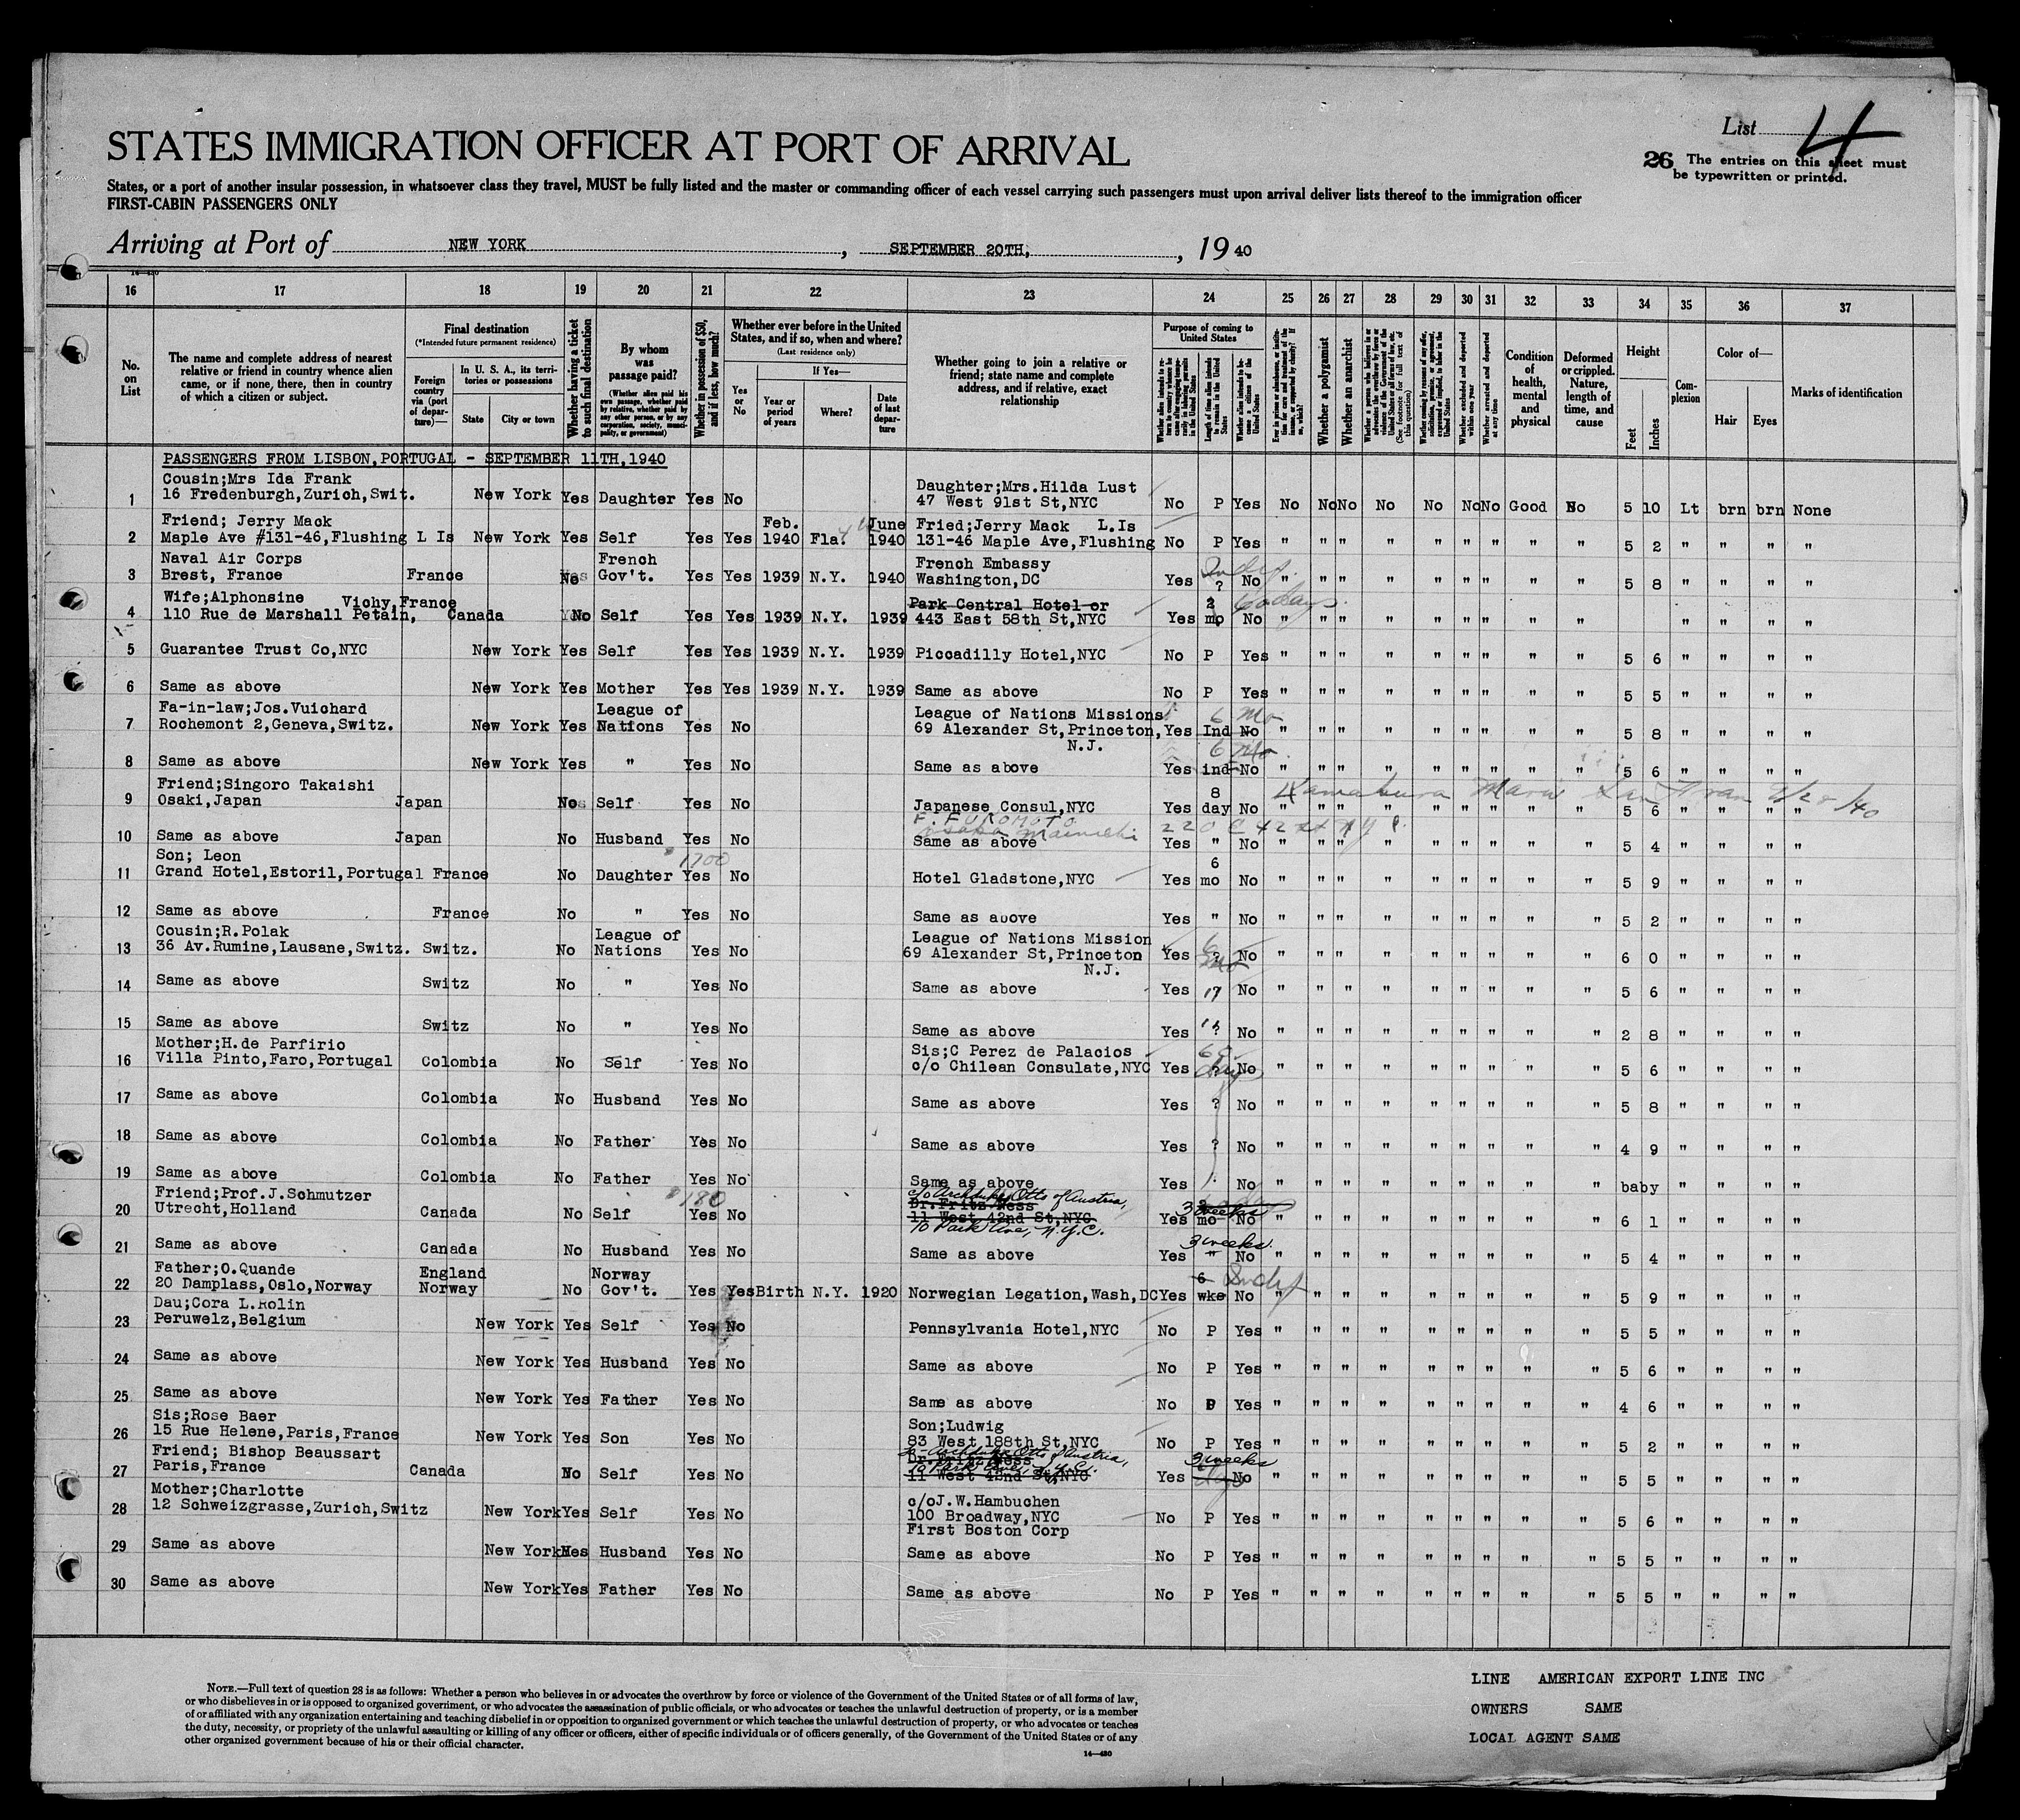 List 4
STATES IMMIGRATION OFFICER AT PORT OF ARRIVAL
26 The entries on this sheet must
be typewritten or printed.
States, or a port of another insular possession, in whatsoever class they travel, MUST be fully listed and the master or commanding officer of each vessel carrying such passengers must upon arrival deliver lists thereof to the immigration officer
FIRST-CABIN PASSENGERS ONLY
Arriving at Port of NEW YORK, SEPTEMBER 20TH, 19 40
16 17 18 19 20 21 22 23 24 25 26 27 28 29 30 31 32 33 34 35 36 37
No. on List
The name and complete address of nearest relative or friend in country whence alien came, or if none, there, then in country of which a citizen or subject.
Final destination
(*Intended future permanent residence)
Foreign country via (port of departure)—
In U. S. A., its territories or possessions
State City or town
Whether having a ticket to such final destination
By whom was passage paid?
(Whether alien paid his own passage, whether paid by relative, whether paid by any other person, or by any corporation, society, municipality, or government)
Whether in possession of $50, and if less, how much?
Whether ever before in the United States, and if so, when and where?
(Last residence only)
Yes or No
If Yes—
Year or period of years
Where?
Date of last departure
Whether going to join a relative or friend; state name and complete address, and if relative, exact relationship
Purpose of coming to United States
Length of time alien intends to remain in the United States
Whether alien intends to become a citizen of the United States
Whether a polygamist
Whether an anarchist
Whether excluded and deported within one year
Whether arrested and deported at any time
Condition of health, mental and physical
Deformed or crippled. Nature, length of time, and cause
Height
Feet Inches
Complexion
Color of—
Hair Eyes
Marks of identification
PASSENGERS FROM LISBON, PORTUGAL - SEPTEMBER 11TH, 1940
1 Cousin;Mrs Ida Frank
16 Fredenburgh,Zurich,Swit. New York Yes Daughter Yes No Daughter;Mrs.Hilda Lust
47 West 91st St,NYC No P Yes No No No No No No No Good No 5 10 Lt brn brn None
2 Friend; Jerry Mack
Maple Ave #131-46,Flushing L Is New York Yes Self Yes Yes Feb. 1940 Fla. June 1940 Fried;Jerry Mack L.Is
131-46 Maple Ave,Flushing No P Yes " " " " " " " " " 5 2 " " " "
3 Naval Air Corps
Brest, France France No French Gov't. Yes Yes 1939 N.Y. 1940 French Embassy
Washington,DC Yes ? No " " " " " " " " " 5 8 " " " "
4 Wife;Alphonsine Vichy,France
110 Rue de Marshall Petain, Canada No Self Yes Yes 1939 N.Y. 1939 Park Central Hotel or
443 East 58th St,NYC Yes 2 mo No 60 days " " " " " " " " " " " " "
5 Guarantee Trust Co,NYC New York Yes Self Yes Yes 1939 N.Y. 1939 Piccadilly Hotel,NYC No P Yes " " " " " " " " " 5 6 " " " "
6 Same as above New York Yes Mother Yes Yes 1939 N.Y. 1939 Same as above No P Yes " " " " " " " " " 5 5 " " " "
7 Fa-in-law;Jos.Vuichard
Rochemont 2,Geneva,Switz. New York Yes League of Nations Yes No League of Nations Missions
69 Alexander St,Princeton, N.J. Yes Ind No 6 Mo " " " " " " " " " 5 8 " " " "
8 Same as above New York Yes " Yes No Same as above Yes ind No 6 Mo " " " " " " " " " 5 6 " " " "
9 Friend;Singoro Takaishi
Osaki,Japan Japan No Self Yes No Japanese Consul,NYC Yes 8 day No Kamakura Maru San Fran " " " " " " " " " 5 6 " " " "
F. FUKOMOTO
Osaka Mainichi 220 E 42 st NY
10 Same as above Japan No Husband Yes No Same as above Yes " No " " " " " " " " " 5 4 " " " "
11 Son; Leon
Grand Hotel,Estoril,Portugal France No Daughter $1700 Yes No Hotel Gladstone,NYC Yes 6 mo No " " " " " " " " " 5 9 " " " "
12 Same as above France No " Yes No Same as above Yes " No " " " " " " " " " 5 2 " " " "
13 Cousin;R.Polak
36 Av.Rumine,Lausane,Switz. Switz. No League of Nations Yes No League of Nations Mission
69 Alexander St,Princeton N.J. Yes ? No 6 mo " " " " " " " " " 6 0 " " " "
14 Same as above Switz No " Yes No Same as above Yes No " " " " " " " " " 5 6 " " " "
15 Same as above Switz No " Yes No Same as above Yes ? No " " " " " " " " " 2 8 " " " "
16 Mother;H.de Parfirio
Villa Pinto,Faro,Portugal Colombia No Self Yes No Sis;C Perez de Palacios
c/o Chilean Consulate,NYC Yes No 60 days " " " " " " " " " 5 6 " " " "
17 Same as above Colombia No Husband Yes No Same as above Yes ? No " " " " " " " " " 5 8 " " " "
18 Same as above Colombia No Father Yes No Same as above Yes ? No " " " " " " " " " 4 9 " " " "
19 Same as above Colombia No Father Yes No Same as above Yes No " " " " " " " " " baby " " " "
20 Friend;Prof.J.Schmutzer
Utrecht,Holland Canada No Self $180 Yes No c/o Archduke Otto of Austria,
Dr.Fritz Ness
11 West 42nd St,NYC
10 Park Ave, N.Y.C. Yes mo No 3 weeks " " " " " " " " " 6 1 " " " "
21 Same as above Canada No Husband Yes No Same as above Yes " No 3 weeks " " " " " " " " " 5 4 " " " "
22 Father;O.Quande
20 Damplass,Oslo,Norway England Norway No Norway Gov't. Yes Yes Birth N.Y. 1920 Norwegian Legation,Wash,DC Yes 6 wks No Indef " " " " " " " " " 5 9 " " " "
23 Dau;Cora L.Rolin
Peruwelz,Belgium New York Yes Self Yes No Pennsylvania Hotel,NYC No P Yes " " " " " " " " " 5 5 " " " "
24 Same as above New York Yes Husband Yes No Same as above No P Yes " " " " " " " " " 5 6 " " " "
25 Same as above New York Yes Father Yes No Same as above No P Yes " " " " " " " " " 4 6 " " " "
26 Sis;Rose Baer
15 Rue Helene,Paris,France New York Yes Son Yes No Son;Ludwig
83 West 188th St,NYC No P Yes " " " " " " " " " 5 2 " " " "
27 Friend; Bishop Beaussart
Paris,France Canada No Self Yes No c/o Archduke Otto of Austria,
Dr.Fritz Ness
10 Park Ave, N.Y.C.
11 West 42nd St,NYC Yes No 3 weeks " " " " " " " " " 5 5 " " " "
28 Mother;Charlotte
12 Schweizgrasse,Zurich,Switz New York Yes Self Yes No c/oJ.W.Hambuchen
100 Broadway,NYC
First Boston Corp No P Yes " " " " " " " " " 5 6 " " " "
29 Same as above New York Yes Husband Yes No Same as above No P Yes " " " " " " " " " 5 5 " " " "
30 Same as above New York Yes Father Yes No Same as above No P Yes " " " " " " " " " 5 5 " " " "
NOTE.—Full text of question 28 is as follows: Whether a person who believes in or advocates the overthrow by force or violence of the Government of the United States or of all forms of law,
or who disbelieves in or is opposed to organized government, or who advocates the assassination of public officials, or who advocates or teaches the unlawful destruction of property, or is a member
of or affiliated with any organization entertaining and teaching disbelief in or opposition to organized government or which teaches the unlawful destruction of property, or who advocates or teaches
the duty, necessity, or propriety of the unlawful assaulting or killing of any officer or officers, either of specific individuals or of officers generally, of the Government of the United States or of any
other organized government because of his or their official character.
14—430
LINE AMERICAN EXPORT LINE INC
OWNERS SAME
LOCAL AGENT SAME